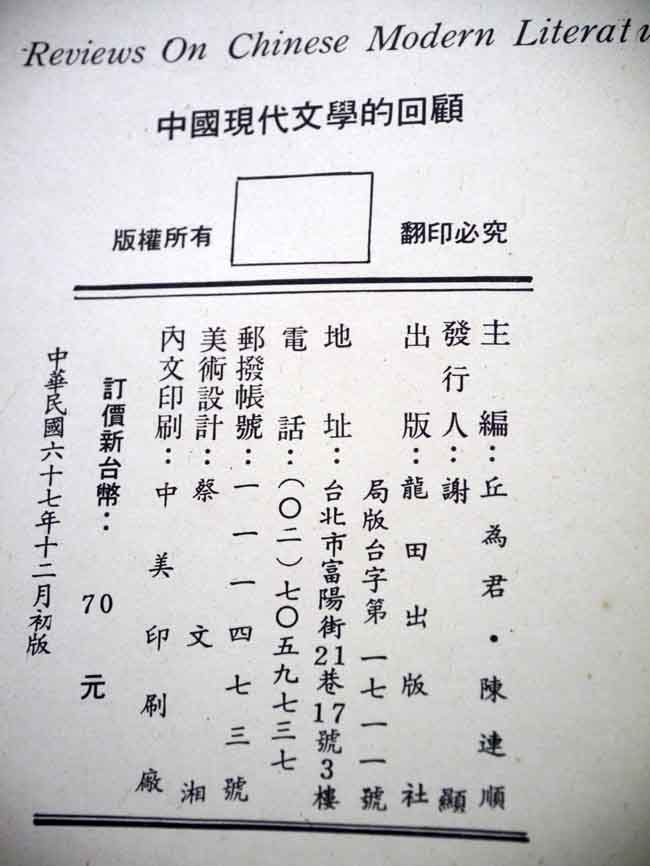 Reviews On Chinese Modern Literatu
中國現代文學的回顧
版權所有
翻印必究
主編：丘為君·陳連順
發行人：謝顯
出版：龍田出版社
局版台字第一七一一號
地址：台北市富陽街21巷17號3樓
電話：(〇二)七〇五九七三七
郵撥帳號：一一一四七三號
美術設計：蔡文湘
內文印刷：中美印刷廠
訂價新台幣：70元
中華民國六十七年十二月初版